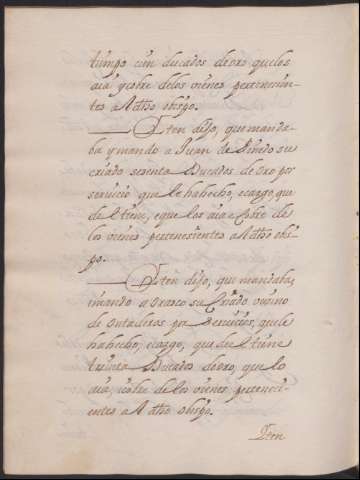 tiempo cien ducados de oro que los
aia y cobre de los vienes pertenecien-
tes a el dho obispo.
Iten dijo, que manda-
ba y mando a Juan de Pinedo su
criado sesenta Ducados de oro por
servicio que le ha hecho, e cargo, que
de el tiene, e que los aia e Cobre de
los vienes pertenesientes a el dho obis-
po.
Iten dijo, que mandaba,
e mando a Orasco su Criado vecino
de Ontaderos por Servicios, que le
ha hecho, e cargo, que de el tiene
treinta Ducados de oro, que lo
aia, i cobre de los vienes perteneci-
entes a el dho obispo.
Iten